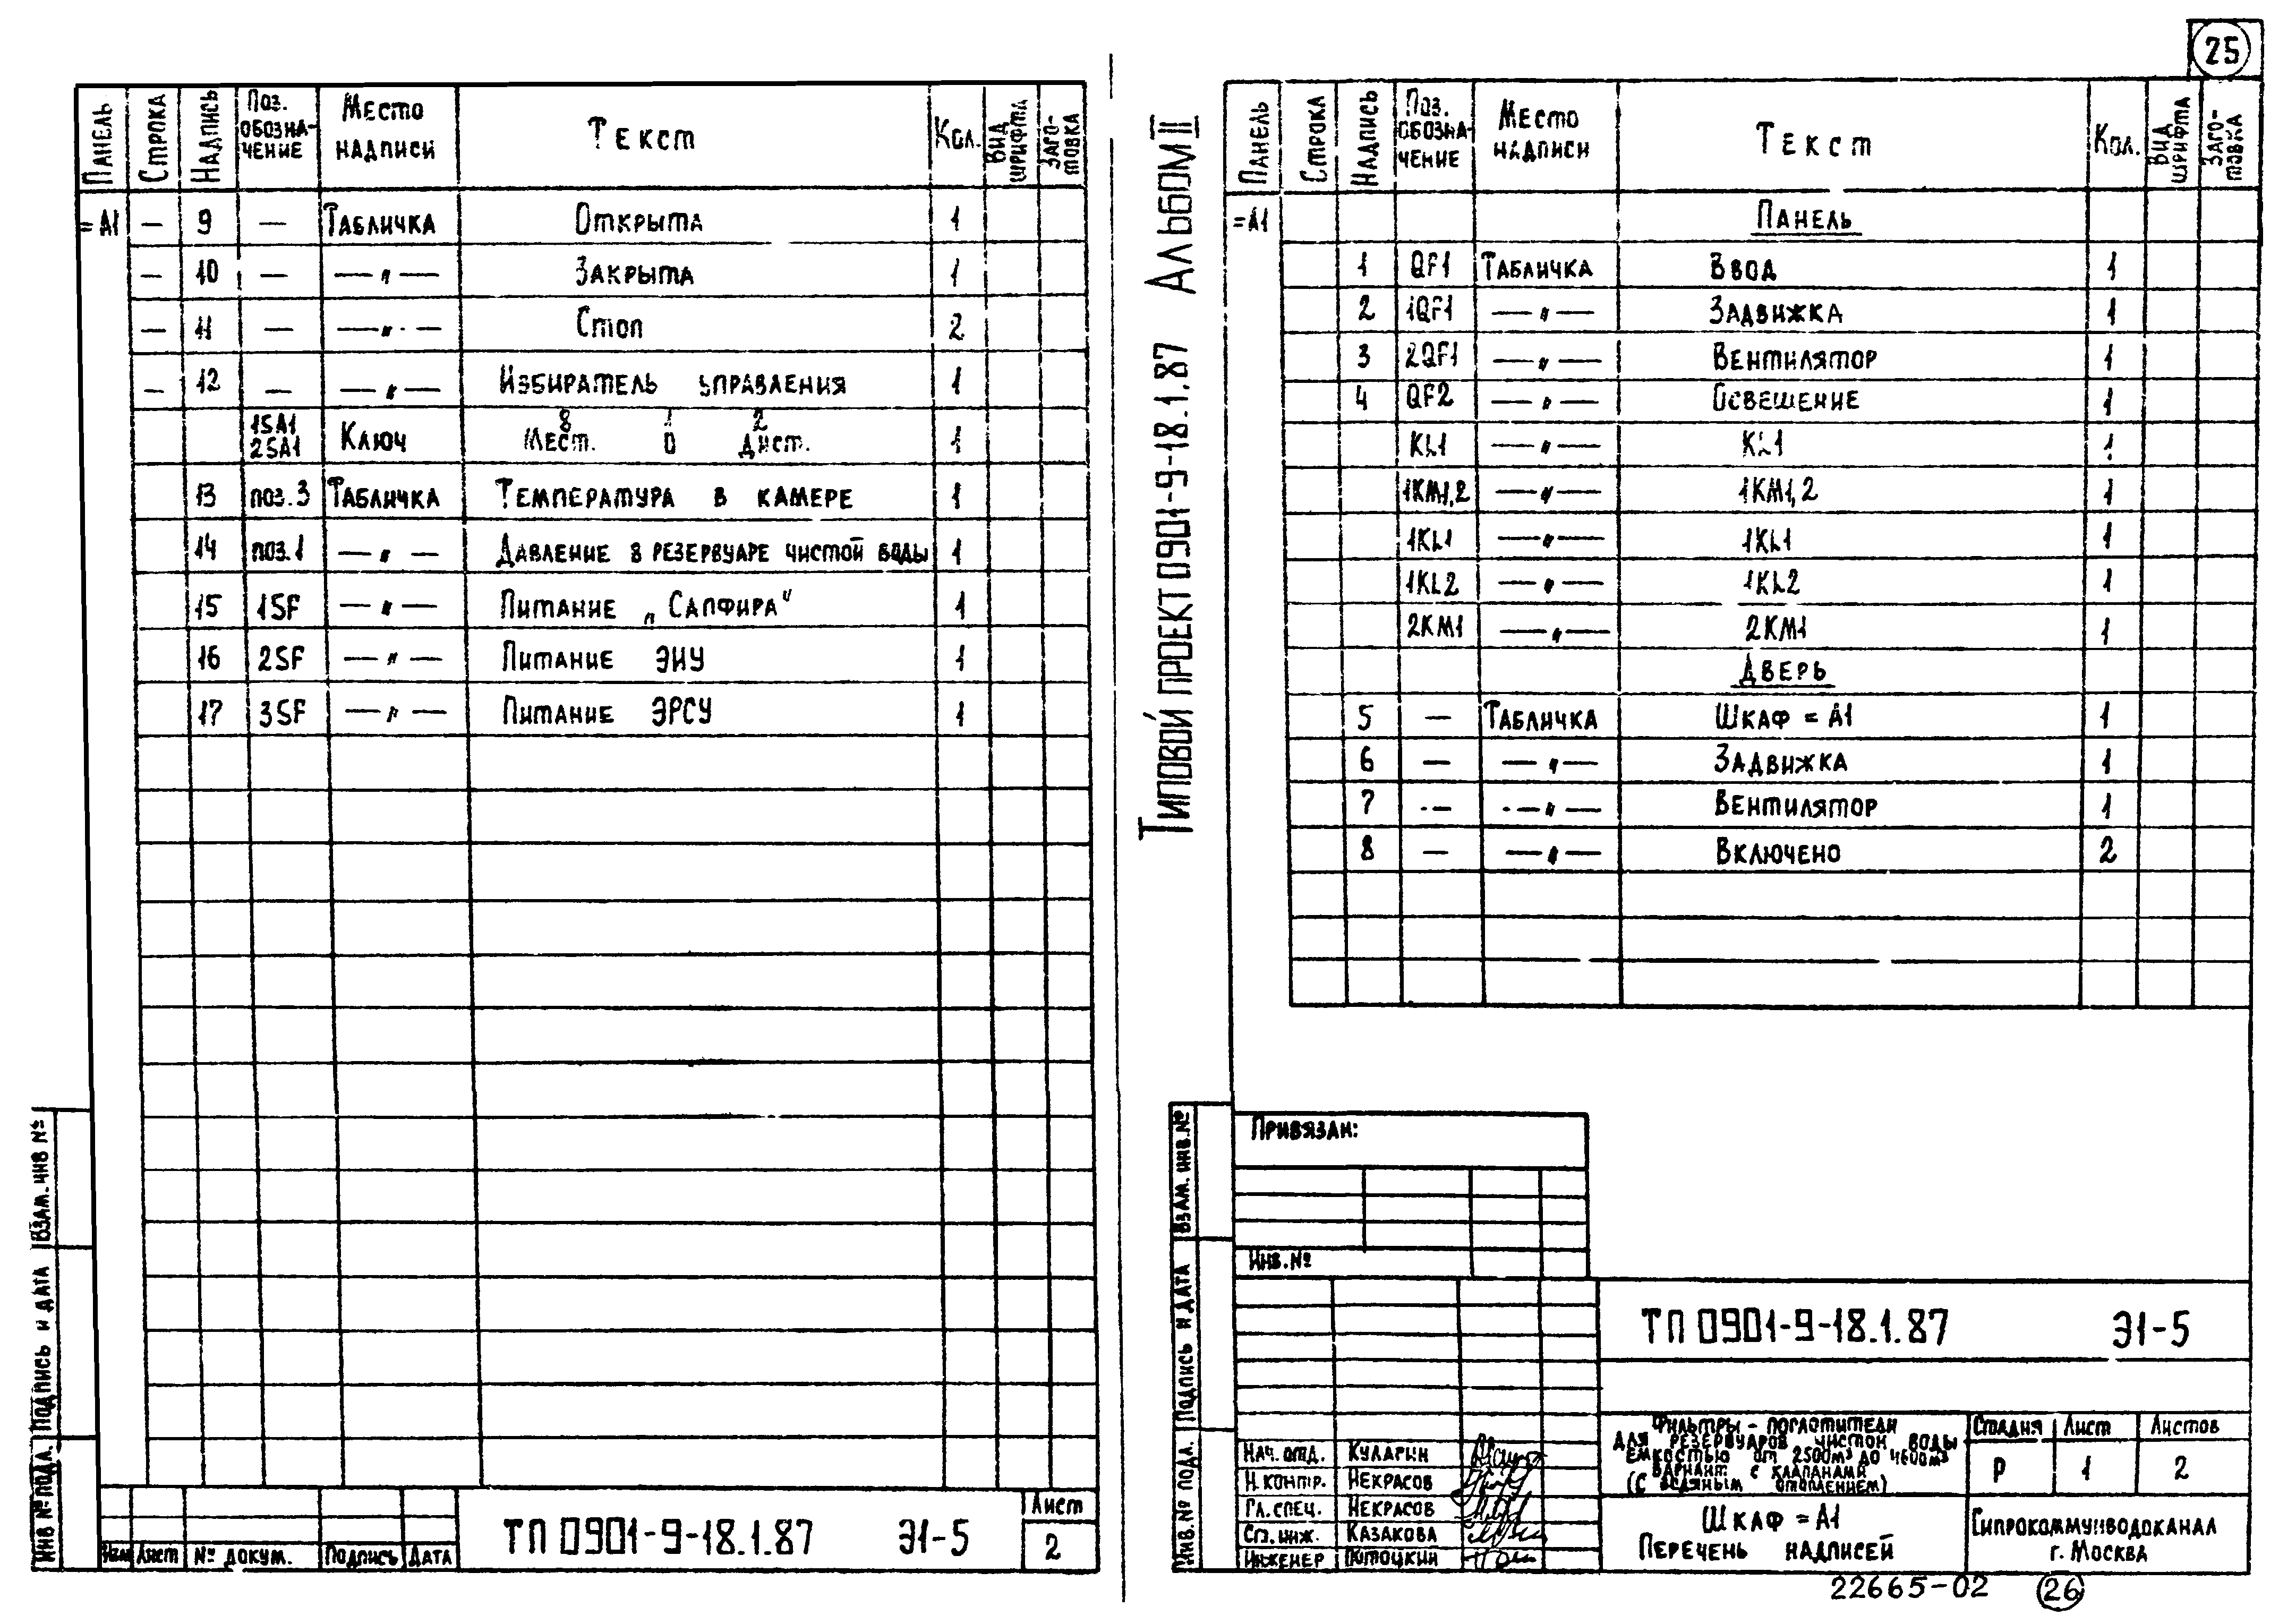 25
Панель Строка Надпись Поз. обозначение Место надписи Текст Кол. Вид шрифта Заготовка
=А1 — 9 — Табличка Открыта 1
— 10 — —〃— Закрыта 1
— 11 — —〃— Стоп 2
— 12 — —〃— Избиратель управления 1
15А1 8 1 2
25А1 Ключ Мест. 0 Дист. 1
13 поз.3 Табличка Температура в камере 1
14 поз.1 —〃— Давление в резервуаре чистой воды 1
15 1SF —〃— Питание „Сапфира" 1
16 2SF —〃— Питание ЭИУ 1
17 3SF —〃— Питание ЭРСУ 1
Инв № подл. Подпись и дата Взам. инв №
Изм Лист № докум. Подпись Дата
ТП 0901-9-18.1.87 Э1-5
Лист
2
Типовой проект 0901-9-18.1.87 Альбом II
Панель Строка Надпись Поз. обозначение Место надписи Текст Кол. Вид шрифта Заготовка
=А1 Панель
1 QF1 Табличка Ввод 1
2 1QF1 —〃— Задвижка 1
3 2QF1 —〃— Вентилятор 1
4 QF2 —〃— Освещение 1
KL1 —〃— KL1 1
1KM1,2 —〃— 1KM1,2 1
1KL1 —〃— 1KL1 1
1KL2 —〃— 1KL2 1
2KM1 —〃— 2KM1 1
Дверь
5 — Табличка Шкаф =А1 1
6 — —〃— Задвижка 1
7 — —〃— Вентилятор 1
8 — —〃— Включено 2
Привязан:
Инв.№
Инв.№ подл. Подпись и дата Взам. инв.№
ТП 0901-9-18.1.87 Э1-5
Нач. отд. Куларин
Н. контр. Некрасов
Гл. спец. Некрасов
Ст. инж. Казакова
Инженер Потоцкий
Фильтры-поглотители
для резервуаров чистой воды
емкостью от 2500м³ до 4600м³
Вариант с клапанами
(с водяным отоплением)
Стадия Лист Листов
Р 1 2
Шкаф =А1
Перечень надписей
Гипрокоммунводоканал
г. Москва
22665-02 26